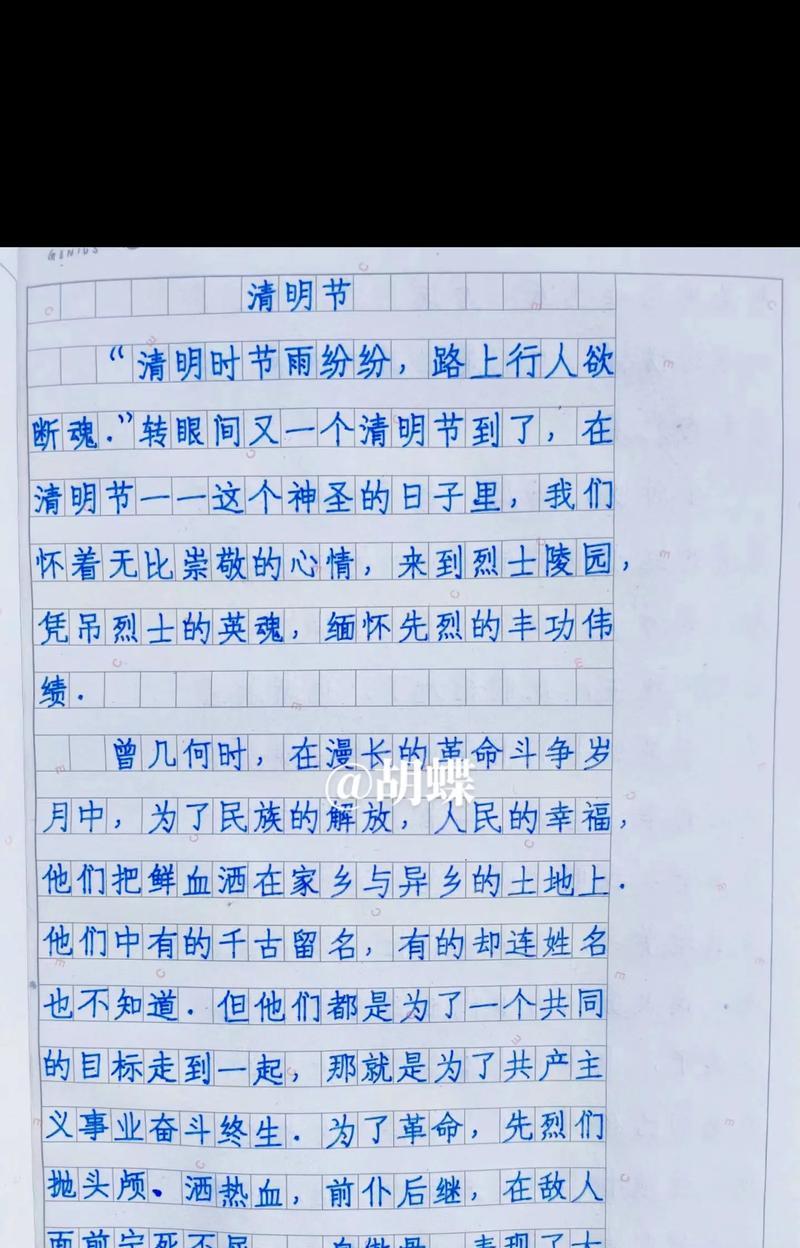 GENIUS
清明节
“清明时节雨纷纷，路上行人欲
断魂.”转眼间又一个清明节到了，在
清明节——这个神圣的日子里，我们
怀着无比崇敬的心情，来到烈士陵园，
凭吊烈士的英魂，缅怀先烈的丰功伟
绩.
曾几何时，在漫长的革命斗争岁
@胡蝶
月中，为了民族的解放，人民的幸福，
他们把鲜血洒在家乡与异乡的土地上.
他们中有的千古留名，有的却连姓名
也不知道.但他们都是为了一个共同
的目标走到一起，那就是为了共产主
义事业奋斗终生.为了革命，先烈们
抛头颅、洒热血，前仆后继，在敌人
面前宁死不屈
表现了大